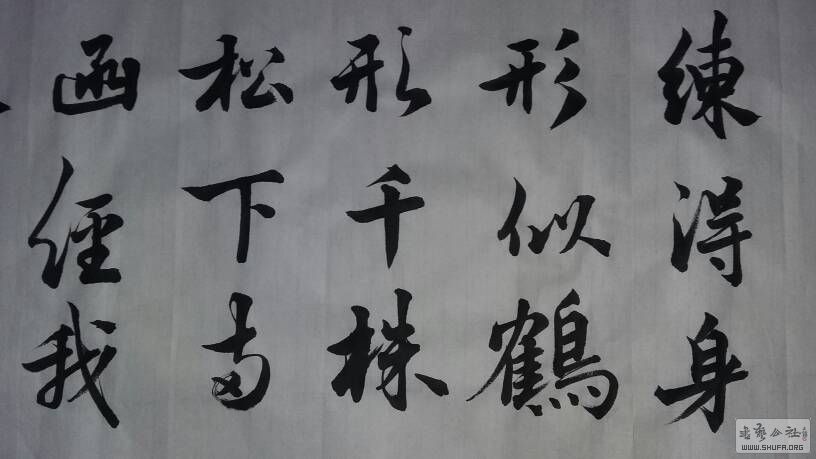 練得身
形似鶴
形千株
松下兩
函經我
書藝公社
WWW.SHUFA.ORG